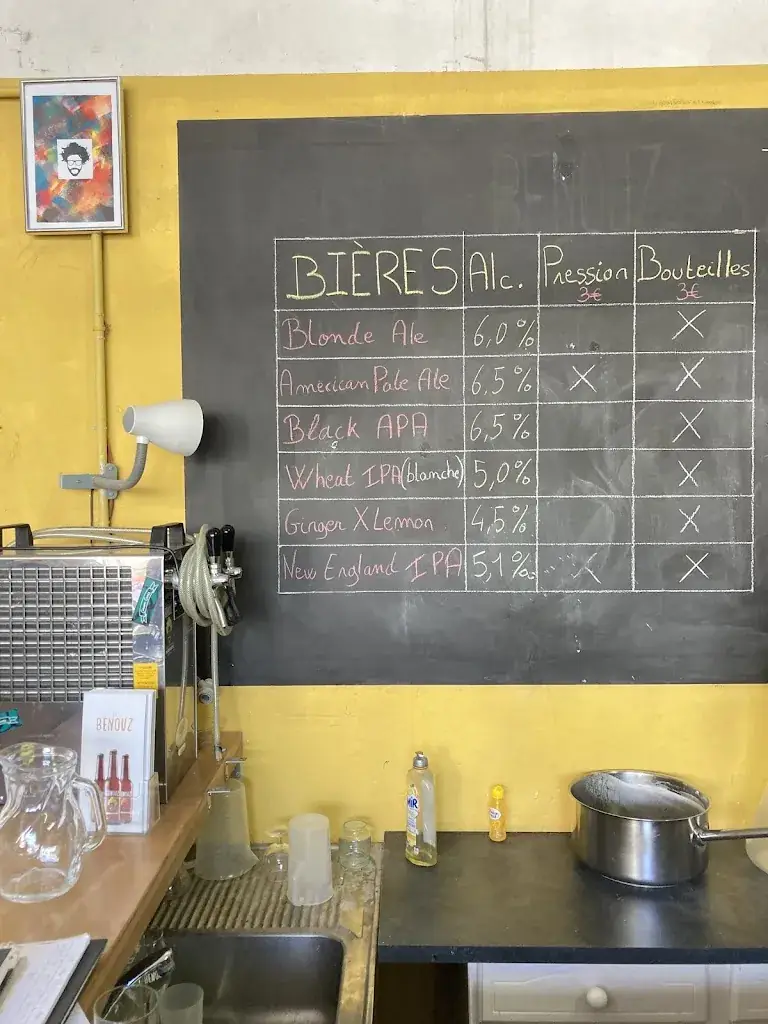 BIÈRES Alc. Pression Bouteilles
3€ 3€
Blonde Ale 6,0% X
American Pale Ale 6,5% X X
Black APA 6,5% X
Wheat IPA (blanche) 5,0% X
Ginger X Lemon 4,5% X
New England IPA 5,1% X X
BENOUZ
MIR